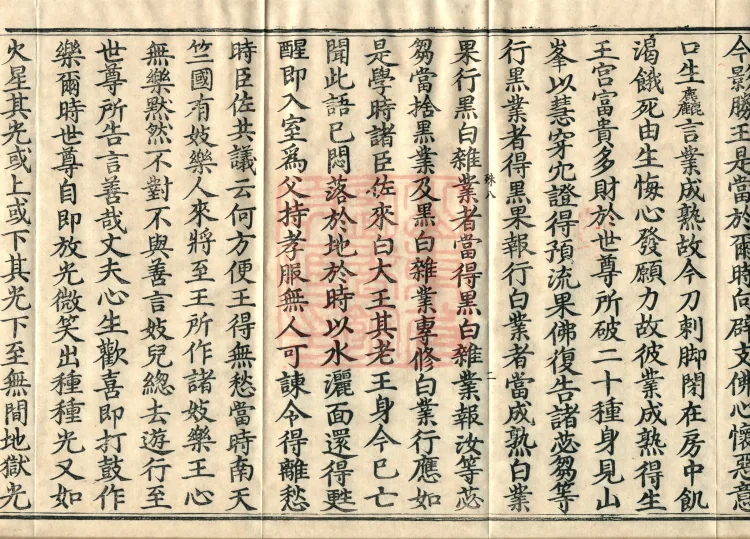 今影勝王是當於爾時向辟支佛心懷惡意
口生麤言業成熟故今刀刺脚閉在房中飢
渴餓死由生悔心發願力故彼業成熟得生
王宫富貴多財於世尊所破二十種身見山
峯以慧穿穴證得預流果佛復告諸苾芻等
行黑業者得黑果報行白業者當成熟白業
殊八 二
果行黑白雜業者當得黑白雜業報汝等苾
芻當捨黑業及黑白雜業專修白業行應如
是學時諸臣佐來白大王其老王身今已亡
聞此語已悶落於地於時以水灑面還得甦
醒即入室爲父持孝服無人可諫令得離愁
時臣佐共議云何方便王得無愁當時南天
竺國有妓樂人來將至王所作諸妓樂王心
無樂默然不對不與善言妓兒總去遊行至
世尊所告言善哉丈夫心生歡喜即打鼓作
樂爾時世尊自即放光微笑出種種光又如
火星其光或上或下其光下至無間地獄光